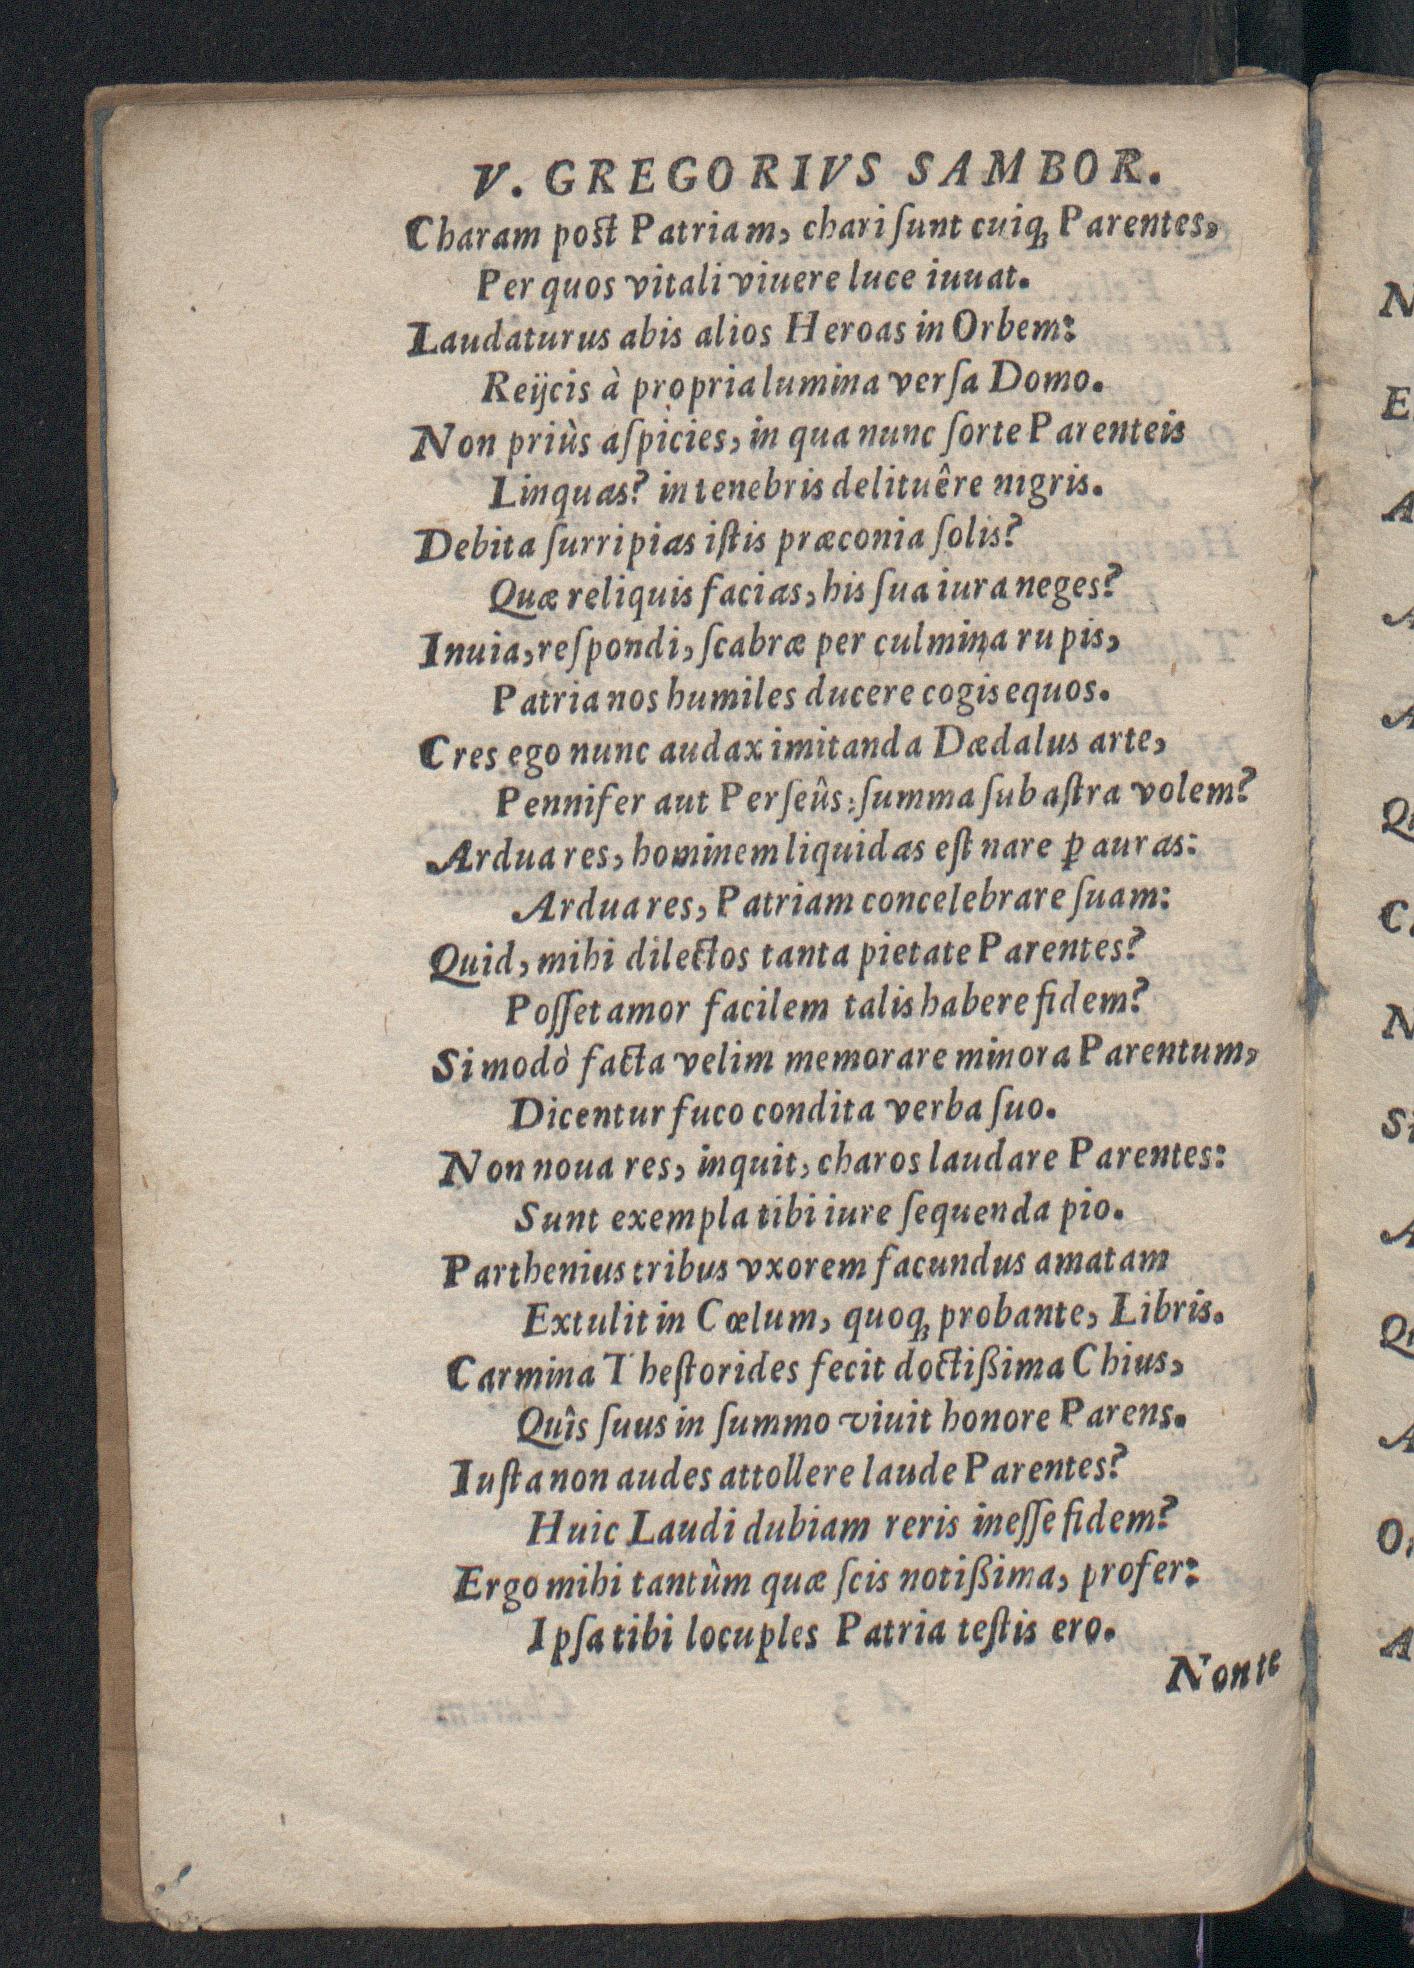 V. GREGORIVS SAMBOR.
Charam post Patriam, chari ſunt cuiq; Parentes,
Per quos vitali viuere luce iuuat.
Laudaturus abis alios Heroas in Orbem:
Reijcis à propria lumina verſa Domo.
Non priùs aſpicies, in qua nunc ſorte Parenteis
Linquas? in tenebris delituêre nigris.
Debita ſurripias iſtis præconia ſolis?
Quæ reliquis facias, his ſua iura neges?
Inuia, reſpondi, ſcabræ per culmina rupis,
Patria nos humiles ducere cogis equos.
Cres ego nunc audax imitanda Dædalus arte,
Pennifer aut Perſeûs: ſumma ſub aſtra volem?
Ardua res, hominem liquidas eſt nare ꝑ auras:
Ardua res, Patriam concelebrare ſuam:
Quid, mihi dilectos tanta pietate Parentes?
Poſſet amor facilem talis habere fidem?
Si modò facta velim memorare minora Parentum,
Dicentur fuco condita verba ſuo.
Non noua res, inquit, charos laudare Parentes:
Sunt exempla tibi iure ſequenda pio.
Parthenius tribus vxorem facundus amatam
Extulit in Cœlum, quoq; probante, Libris.
Carmina Theſtorides fecit doctißima Chius,
Quîs ſuus in ſummo viuit honore Parens.
Iuſta non audes attollere laude Parentes?
Huic Laudi dubiam reris ineſſe fidem?
Ergo mihi tantùm quæ ſcis notißima, profer:
Ipſa tibi locuples Patria teſtis ero.
Non te